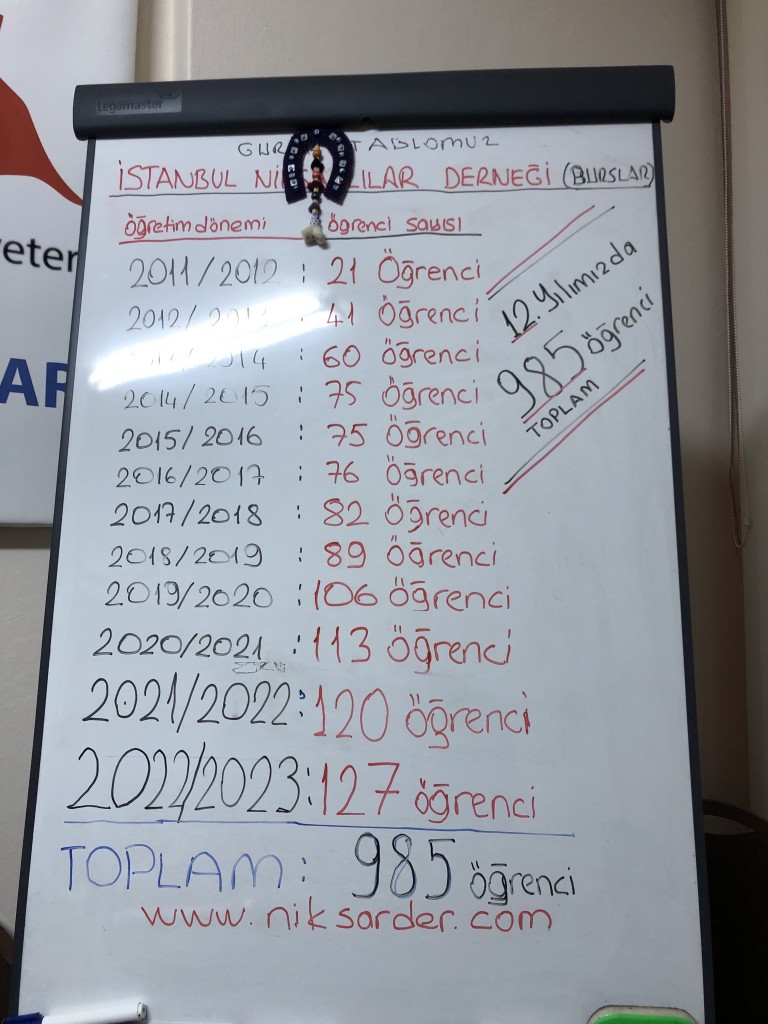 Legamaster
TABLOMUZ
İSTANBUL DERNEĞİ (BURSLAR)
öğretim dönemi öğrenci sayısı
2011/2012 : 21 Öğrenci
2012/ 41 Öğrenci
60 Öğrenci
2014/2015 : 75 Öğrenci
2015/2016 : 75 Öğrenci
2016/2017 : 76 Öğrenci
2017/2018 : 82 Öğrenci
2018/2019 : 89 Öğrenci
2019/2020 : 106 öğrenci
2020/2021 : 113 öğrenci
2021/2022 : 120 öğrenci
2022/2023 : 127 öğrenci
TOPLAM : 985 öğrenci
www.niksarder.com
12. Yılımızda
985 öğrenci
TOPLAM